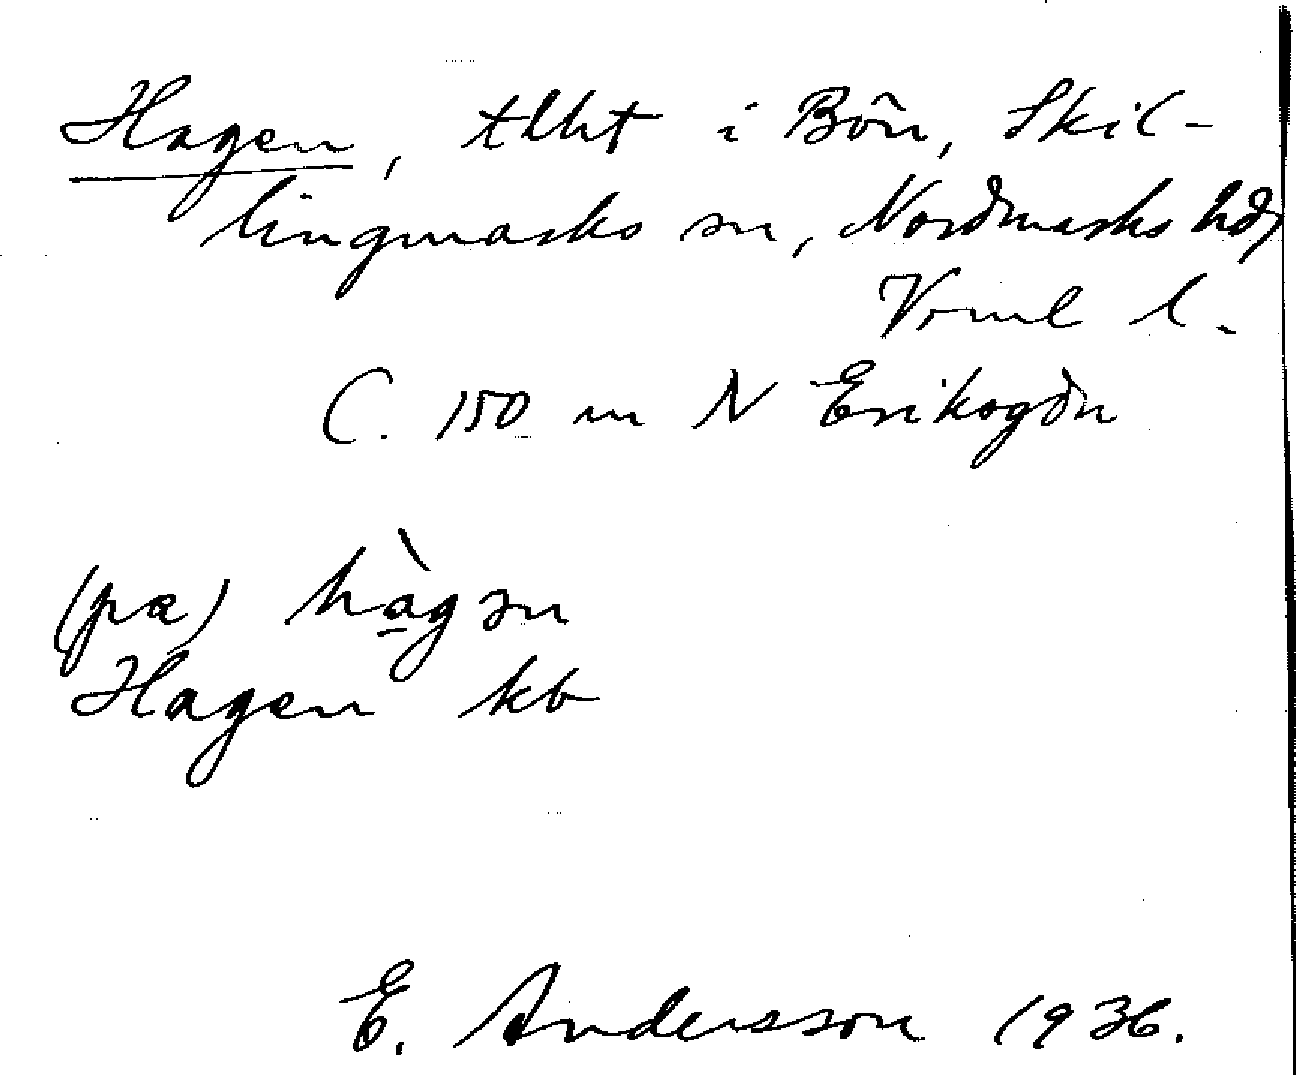 Hagen, tlht i Bön, Skil-
lingmarks sn, Nordmarks hd,
Vrml l.
C. 150 m N Eriksgdn
(pα) hὰ̱gən
Hagen kb
E. Andersson 1936.